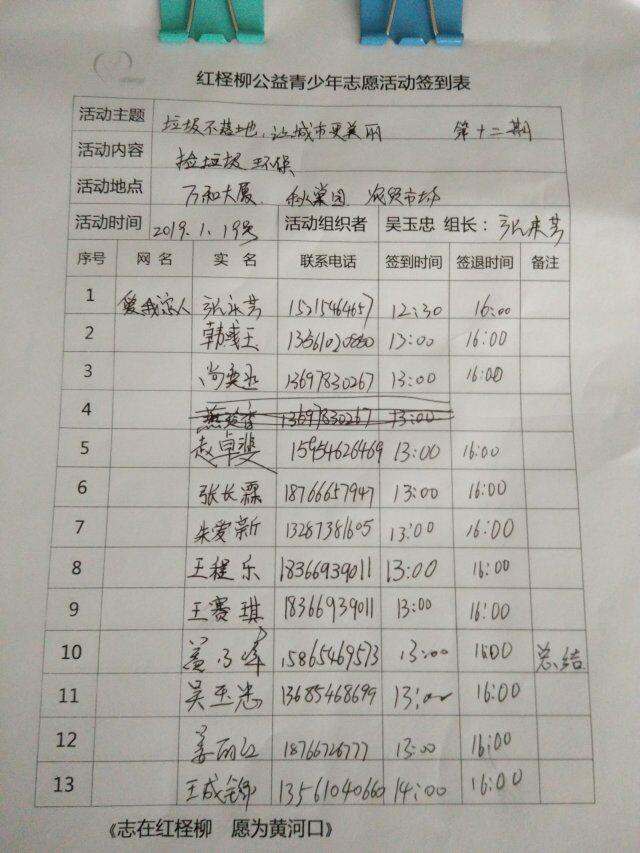 红柽柳公益青少年志愿活动签到表
活动主题 垃圾不落地,让城市更美丽 第十二期
活动内容 捡垃圾 环保
活动地点 万和大厦、 农贸市场
活动时间 2019.1.19号 活动组织者 吴玉忠 组长:张永芳
序号 网 名 实 名 联系电话 签到时间 签退时间 备注
1 爱我家人 张永芳 15215464657 12:30 16:00
2 13561020880 13:00 16:00
3 尚奕丞 13697830267 13:00 16:00
4 13697830267 13:00
5 赵卓斐 15954626469 13:00 16:00
6 张长霖 18766657947 13:00 16:00
7 朱爱新 13287381605 13:00 16:00
8 王程乐 18366939011 13:00 16:00
9 王赛琪 18366939011 13:00 16:00
10 盖 15865469573 13:00 16:00 总结
11 吴玉忠 13685468699 13:00 16:00
12 姜丽江 18766726777 13:00 16:00
13 王成锦 13561040660 14:00 16:00
《志在红柽柳 愿为黄河口》